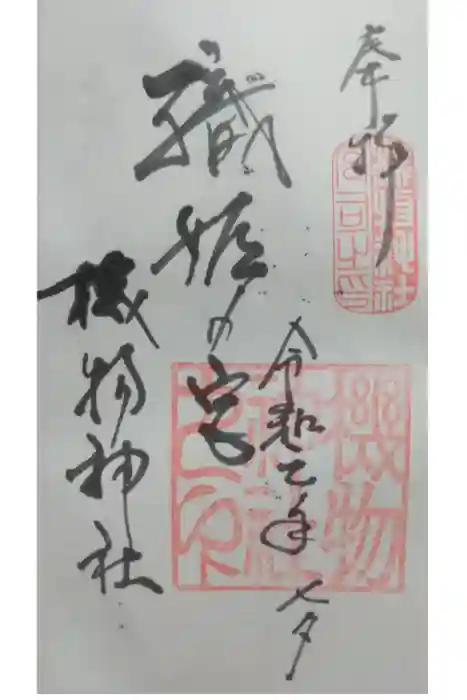 奉拝
令和元年 七夕
織姫の宮
機物神社
機物
神社
之印